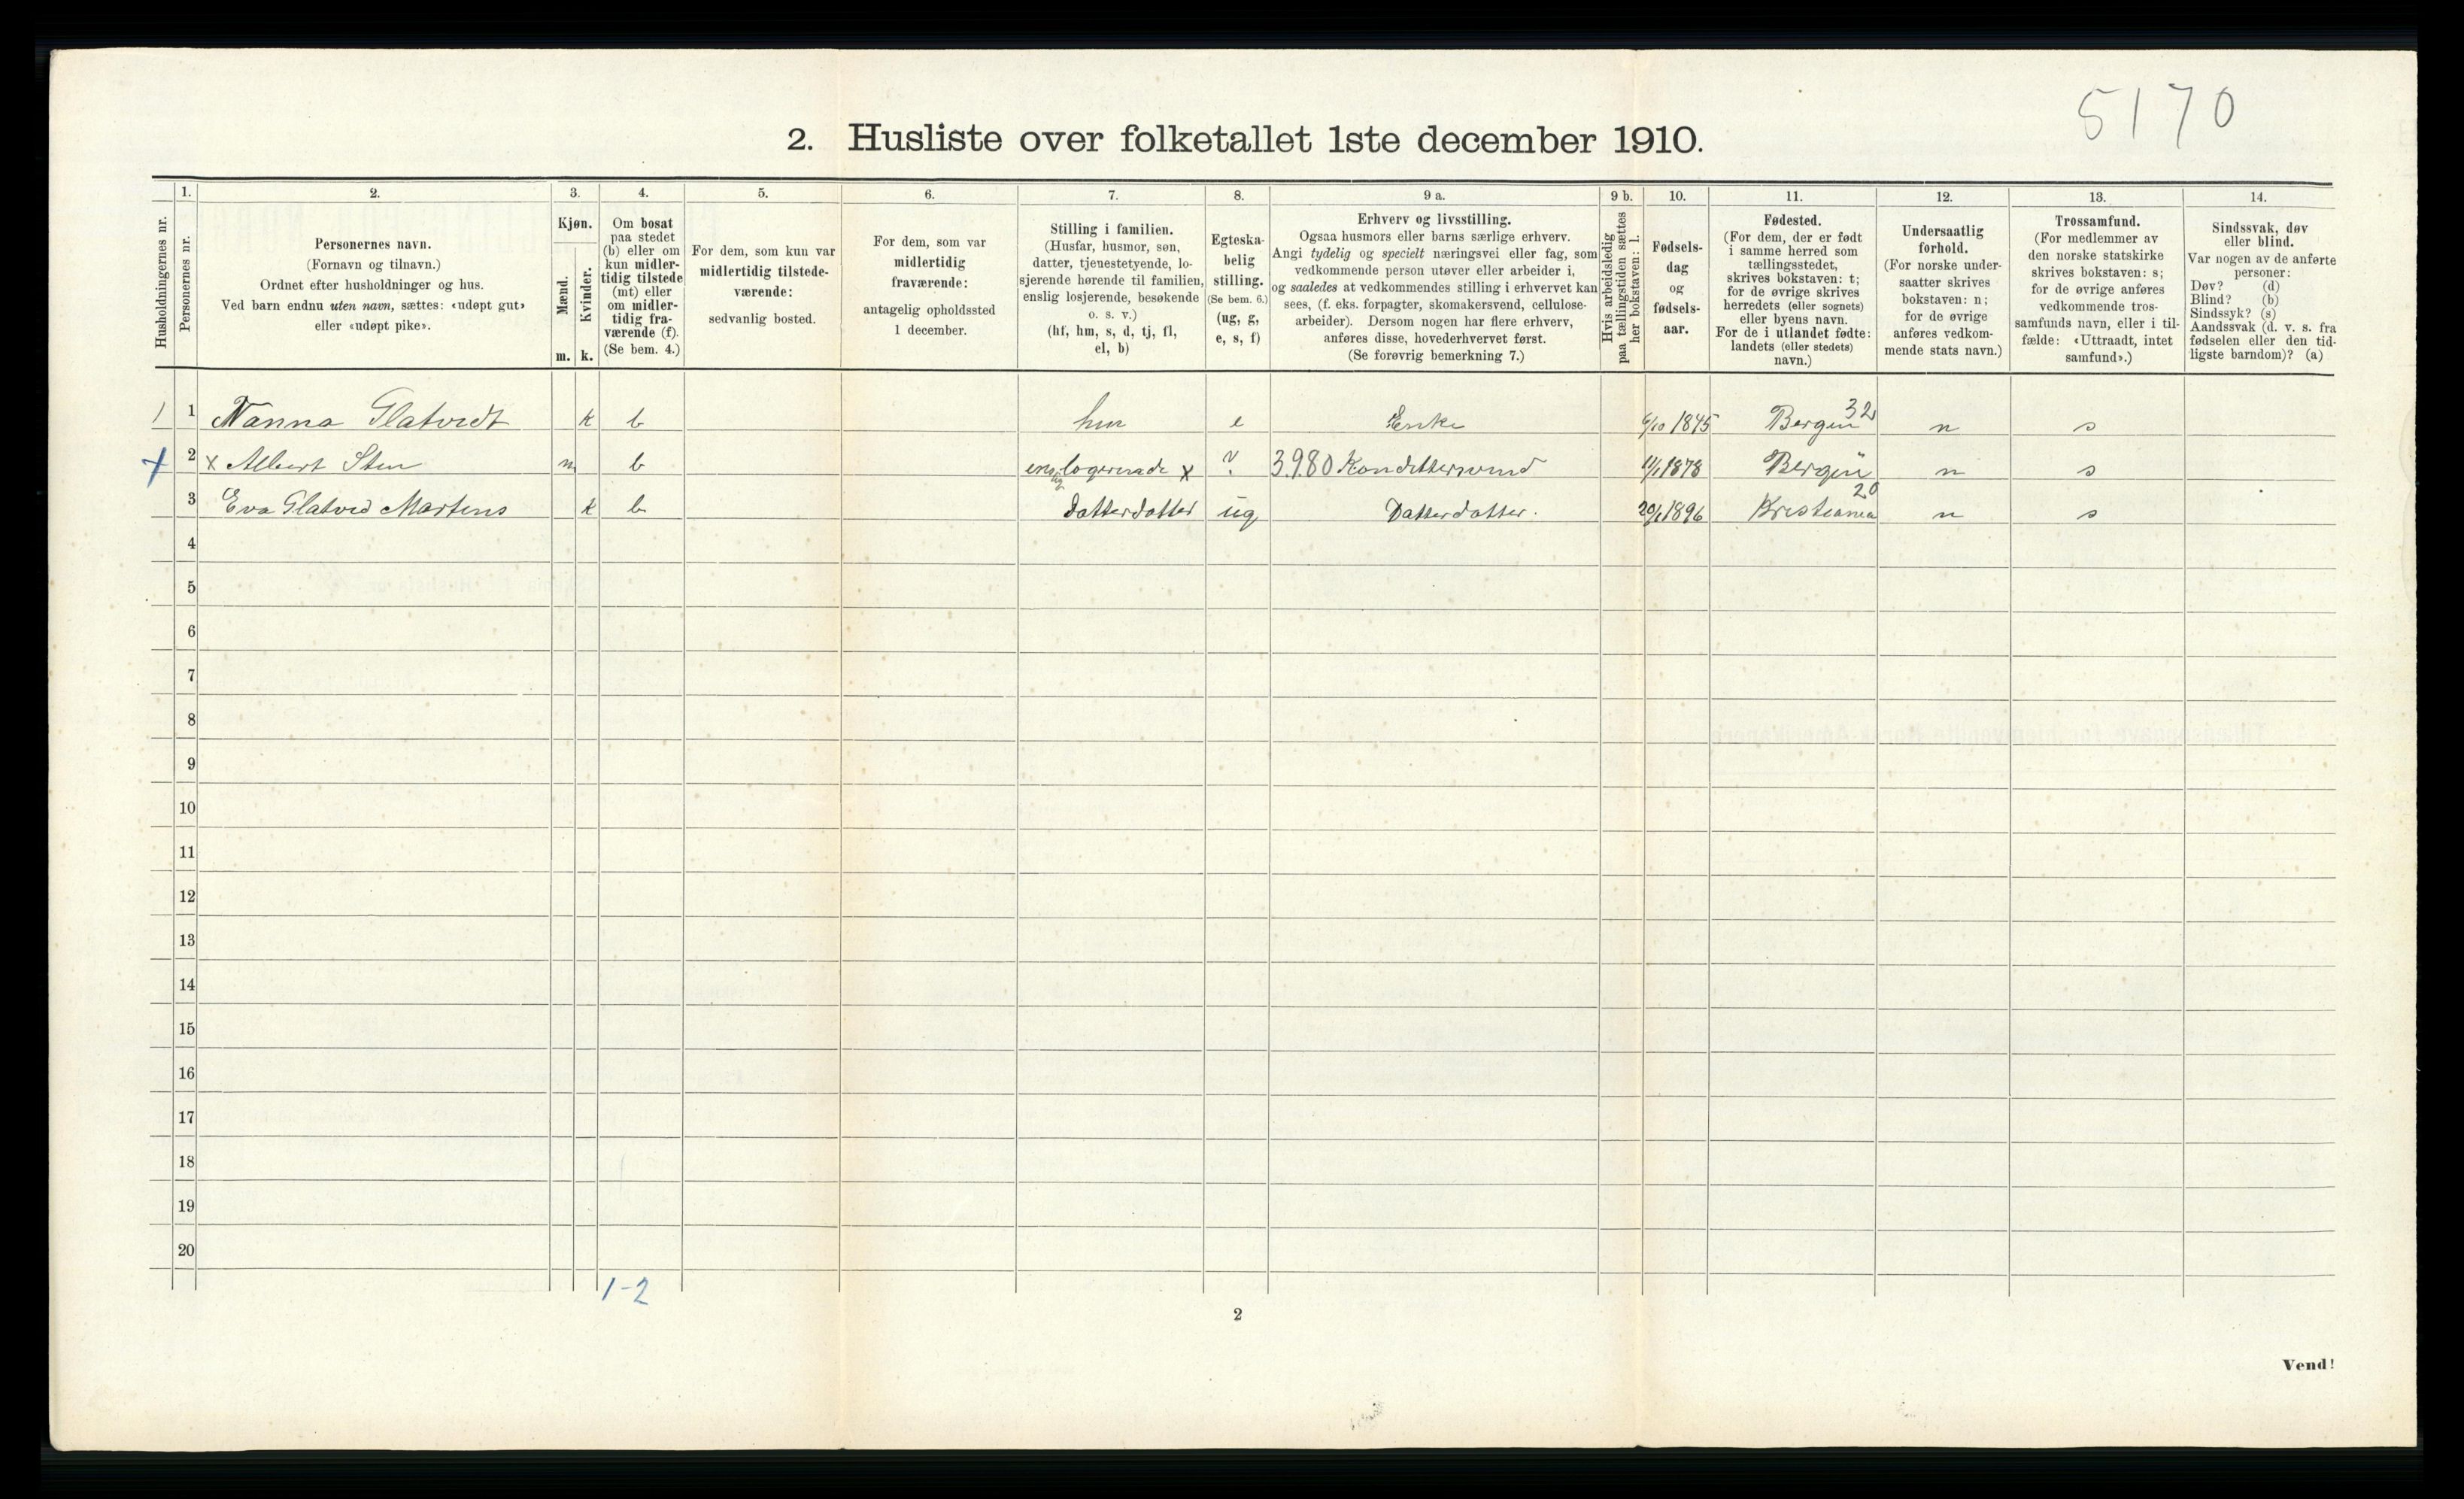 5170
2. Husliste over folketallet 1ste december 1910.
Husholdningernes nr.
1. Personernes nr.
2. Personernes navn.
(Fornavn og tilnavn.)
Ordnet efter husholdninger og hus.
Ved barn endnu uten navn, sættes: «udøpt gut»
eller «udøpt pike».
3. Kjøn.
Mænd. m.
Kvinder. k.
4. Om bosat
paa stedet
(b) eller om
kun midler-
tidig tilstede
(mt) eller
om midler-
tidig fra-
værende (f).
(Se bem. 4.)
5. For dem, som kun var
midlertidig tilstede-
værende:
sedvanlig bosted.
6. For dem, som var
midlertidig
fraværende:
antagelig opholdssted
1 december.
7. Stilling i familien.
(Husfar, husmor, søn,
datter, tjenestetyende, lo-
sjerende hørende til familien,
enslig losjerende, besøkende
o. s. v.)
(hf, hm, s, d, tj, fl,
el, b)
8. Egteska-
belig
stilling.
(Se bem. 6.)
(ug, g,
e, s, f)
9 a. Erhverv og livsstilling.
Ogsaa husmors eller barns særlige erhverv.
Angi tydelig og specielt næringsvei eller fag, som
vedkommende person utøver eller arbeider i,
og saaledes at vedkommendes stilling i erhvervet kan
sees, (f. eks. forpagter, skomakersvend, cellulose-
arbeider). Dersom nogen har flere erhverv,
anføres disse, hovederhvervet først.
(Se forøvrig bemerkning 7.)
9 b. Hvis arbeidsledig
paa tællingstiden sættes
her bokstaven: l.
10. Fødsels-
dag
og
fødsels-
aar.
11. Fødested.
(For dem, der er født
i samme herred som
tællingsstedet,
skrives bokstaven: t;
for de øvrige skrives
herredets (eller sognets)
eller byens navn.
For de i utlandet fødte:
landets (eller stedets)
navn.)
12. Undersaatlig
forhold.
(For norske under-
saatter skrives
bokstaven: n;
for de øvrige
anføres vedkom-
mende stats navn.)
13. Trossamfund.
(For medlemmer av
den norske statskirke
skrives bokstaven: s;
for de øvrige anføres
vedkommende tros-
samfunds navn, eller i til-
fælde: «Uttraadt, intet
samfund».)
14. Sindssvak, døv
eller blind.
Var nogen av de anførte
personer:
Døv? (d)
Blind? (b)
Sindssyk? (s)
Aandssvak (d. v. s. fra
fødselen eller den tid-
ligste barndom)? (a)
1 1 Nanna Glatvedt k b hm e Enke 6/10 1845 Bergen 32 n s
x 2 x Albert Sten m b enslig logerende x ? 3.9.80 Kondittersvend 11/1 1878 Bergen n s
3 Eva Glatved Martens k b Datterdatter ug Datterdatter. 20/1 1896 Kristiania 20 n s
4
5
6
7
8
9
10
11
12
13
14
15
16
17
18
19
20
1-2
2
Vend!